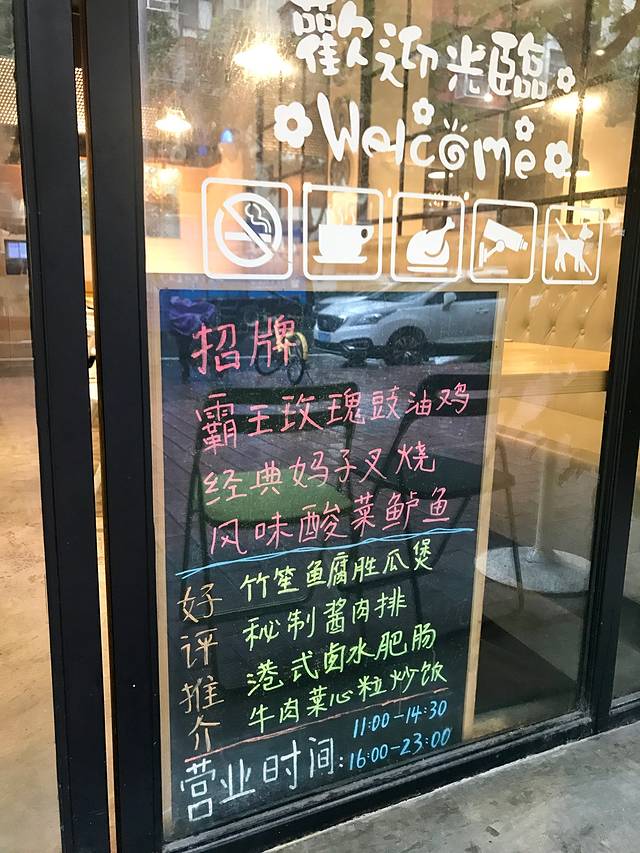 歡迎光臨
Welcome
招牌
霸王玫瑰豉油鸡
经典妈子叉烧
风味酸菜鲈鱼
好评推介
竹笙鱼腐胜瓜煲
秘制酱肉排
港式卤水肥肠
牛肉菜心粒炒饭
营业时间:11:00-14:30
16:00-23:00